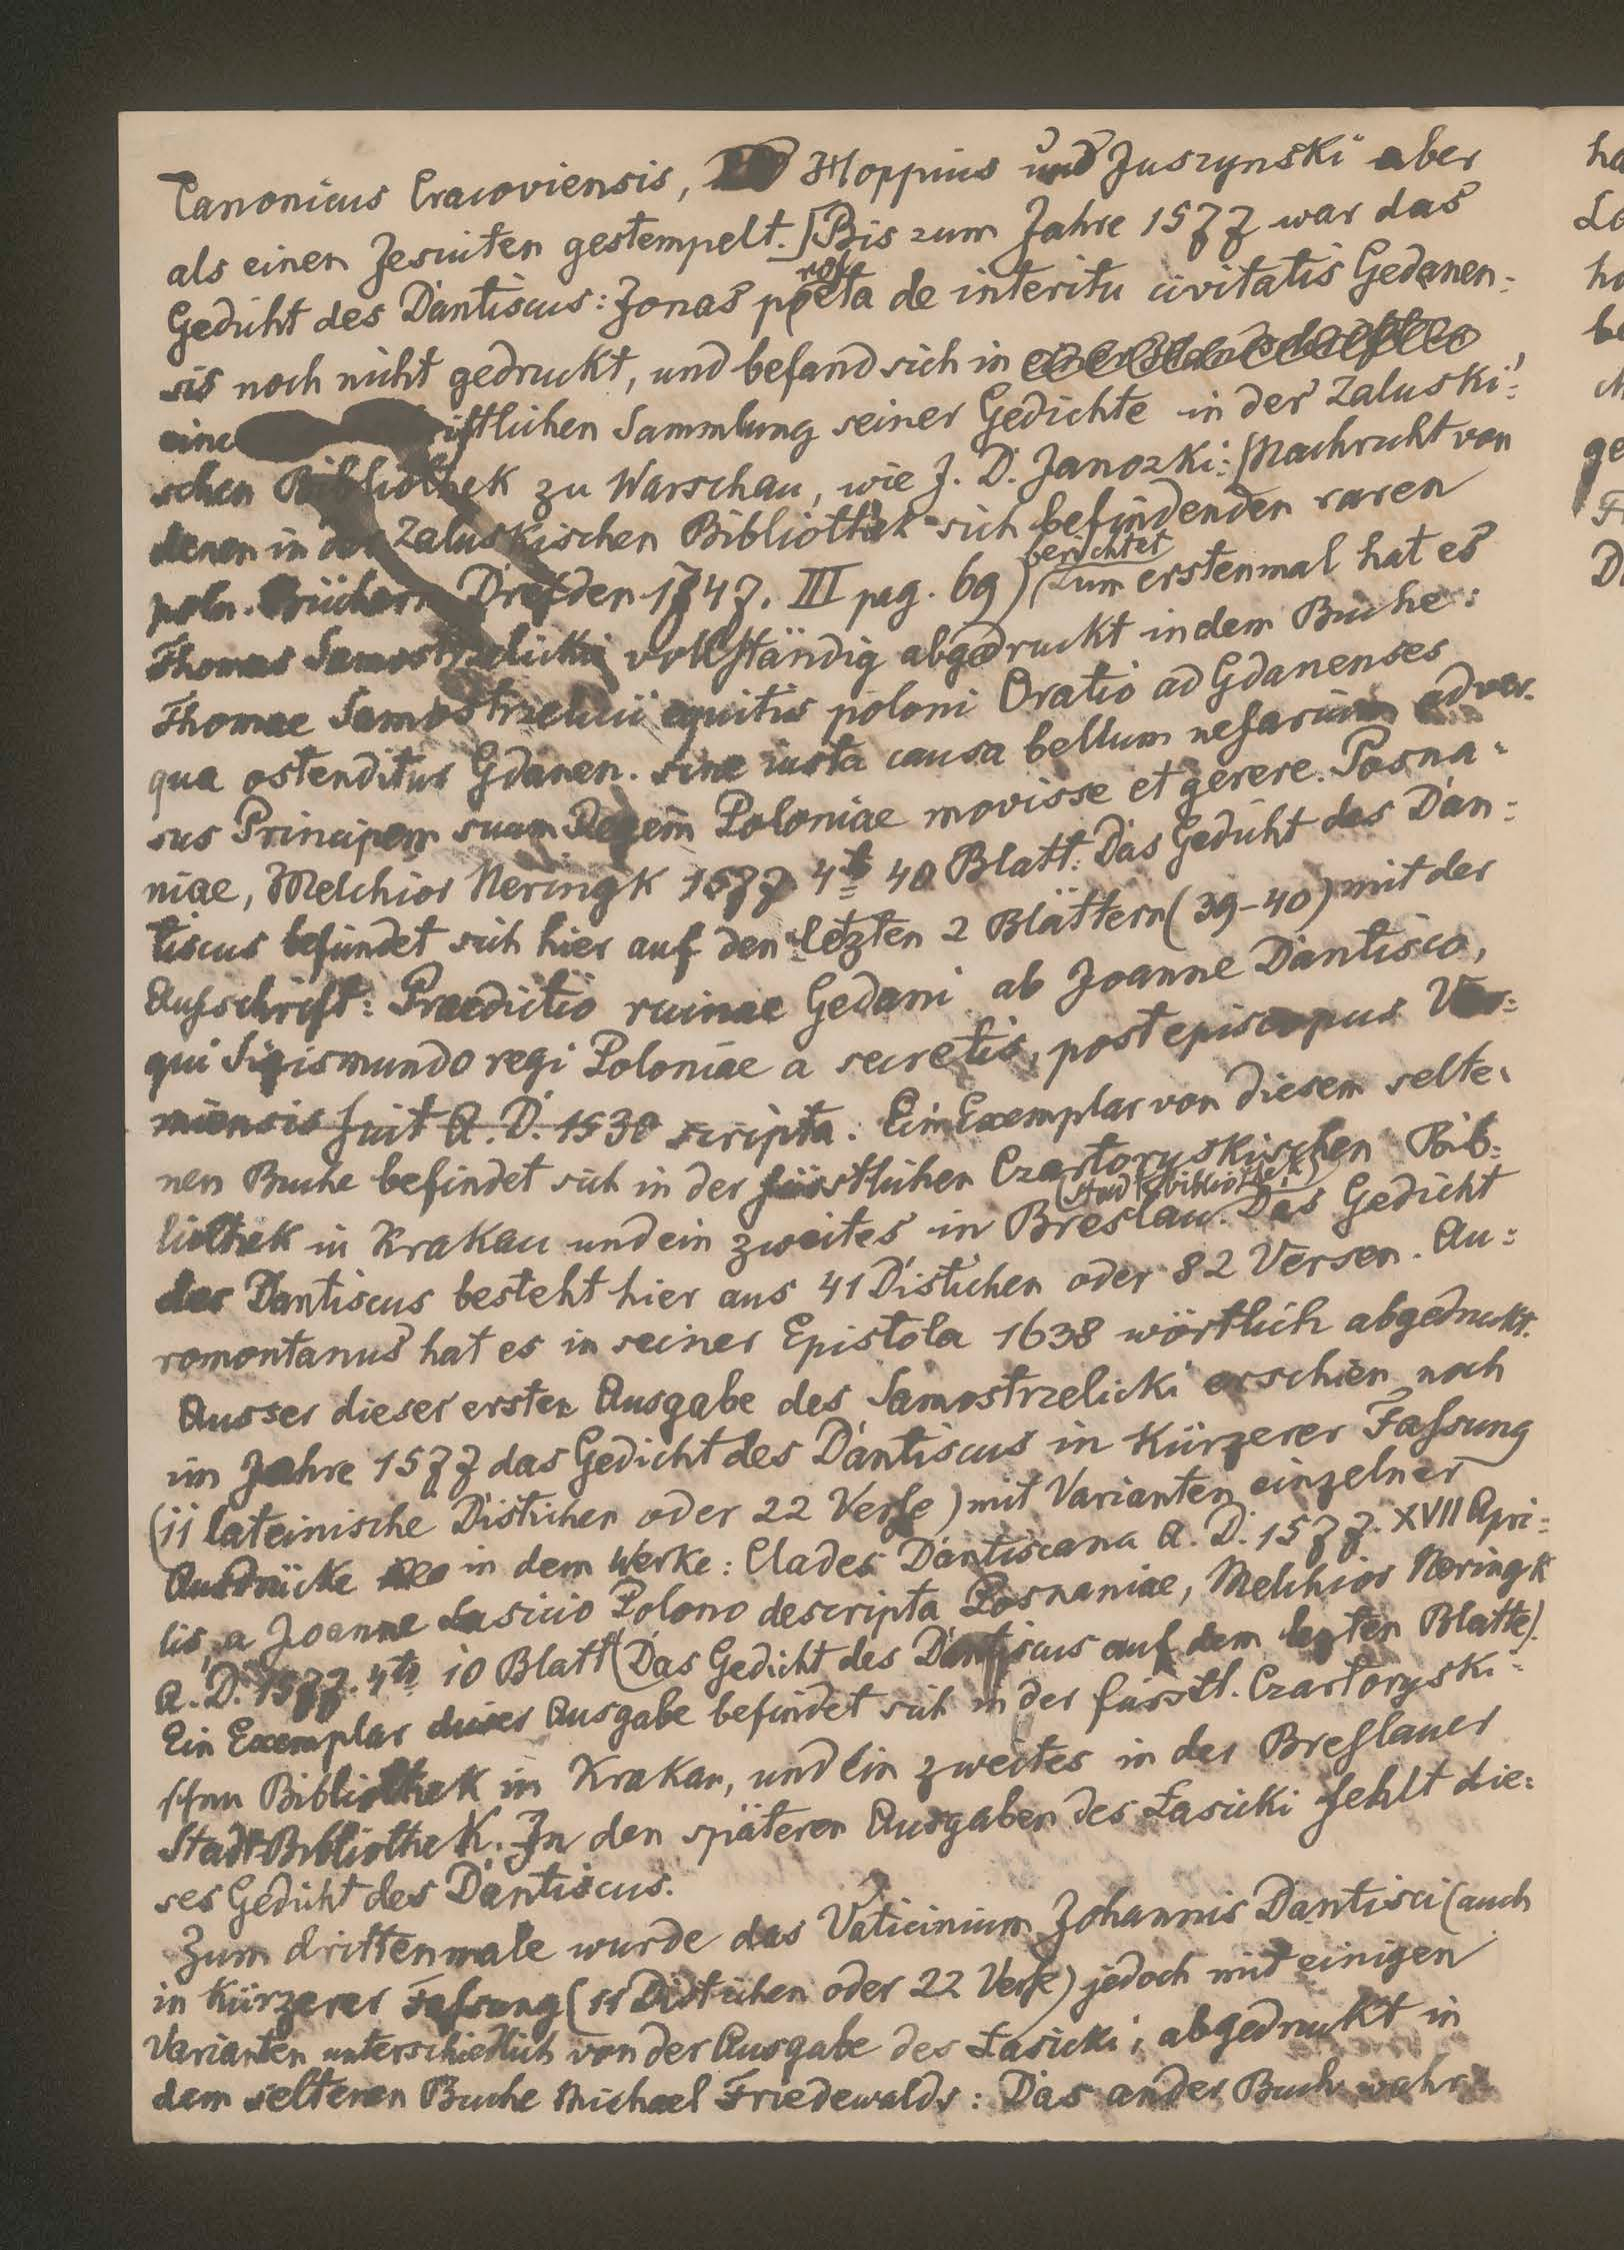 Canonicus Cracoviensis, Hoppius und Juszynski aber
als einen Jesuiten gestempelt.] Bis zum Jahre 1577 war das
Gedicht des Dantiscus: Jonas propheta de interitu civitatis Gedanen=
sis noch nicht gedruckt, und befand sich in
eine riftlichen Sammlung seiner Gedichte in der Zaluski=
schen Bibliothek zu Warschau, wie J. D. Janozki: (Nachricht von
denen in der Zaluskischen Bibliothek sich befindenden raren
poln. Büchern Dresden 1747. III pag. 69) berichtet Zum erstenmal hat es
Thomas Samostrzelicki vollständig abgedruckt in dem Buche:
Thomae Samostrzelicii equitis poloni Oratio ad Gdanenses
qua ostenditur Gdanen. sine iusta causa bellum nefarium adver.
sus Principem suum Regem Poloniae movisse et gerere. Posna=
niae, Melchior Neringk 1577 4to 40 Blatt. Das Gedicht des Dan=
tiscus befindet sich hier auf den letzten 2 Blättern (39-40) mit der
Aufschrift: Praedictio ruinae Gedani ab Joanne Dantisco,
qui Sigismundo regi Poloniae a secretis, post episcopus Var=
miensis fuit A. D. 1530 scripta. Ein Exemplar von diesem selte=
nen Buche befindet sich in der fürstlichen Czartoryskischen Bib=
liothek in Krakau und ein zweites in Breslau (Stadtbibliothek). Das Gedicht
des Dantiscus besteht hier aus 41 Distichen oder 82 Versen. Au=
romontanus hat es in seiner Epistola 1638 wörtlich abgedruckt.
Ausser dieser ersten Ausgabe des Samostrzelicki erschien noch
im Jahre 1577 das Gedicht des Dantiscus in kürzerer Fassung
(11 lateinische Distichen oder 22 Verse) mit Varianten einzelner
Ausdrücke in dem Werke: Clades Dantiscana A. D. 1577. XVII Apri=
lis, a Joanne Lasicio Polono descripta Posnaniae, Melchior Neringk
A. D. 1577. 4to 10 Blatt (Das Gedicht des Dantiscus auf dem lezten Blatte).
Ein Exemplar dieser Ausgabe befindet sich in der fürstl. Czartoryski=
schen Bibliothek in Krakau, und ein zweites in der Breslauer
Stadt-Bibliothek. In den späteren Ausgaben des Łasicki fehlt die=
ses Gedicht des Dantiscus.
Zum drittenmale wurde das Vaticinium Johannis Dantisci (auch
in kürzerer Fassung (11 Distichen oder 22 Verse) jedoch mit einigen
Varianten unterschiedlich von der Ausgabe des Łasicki, abgedruckt in
dem seltenen Buche Michael Friedewalds: Das ander Buch wahr=